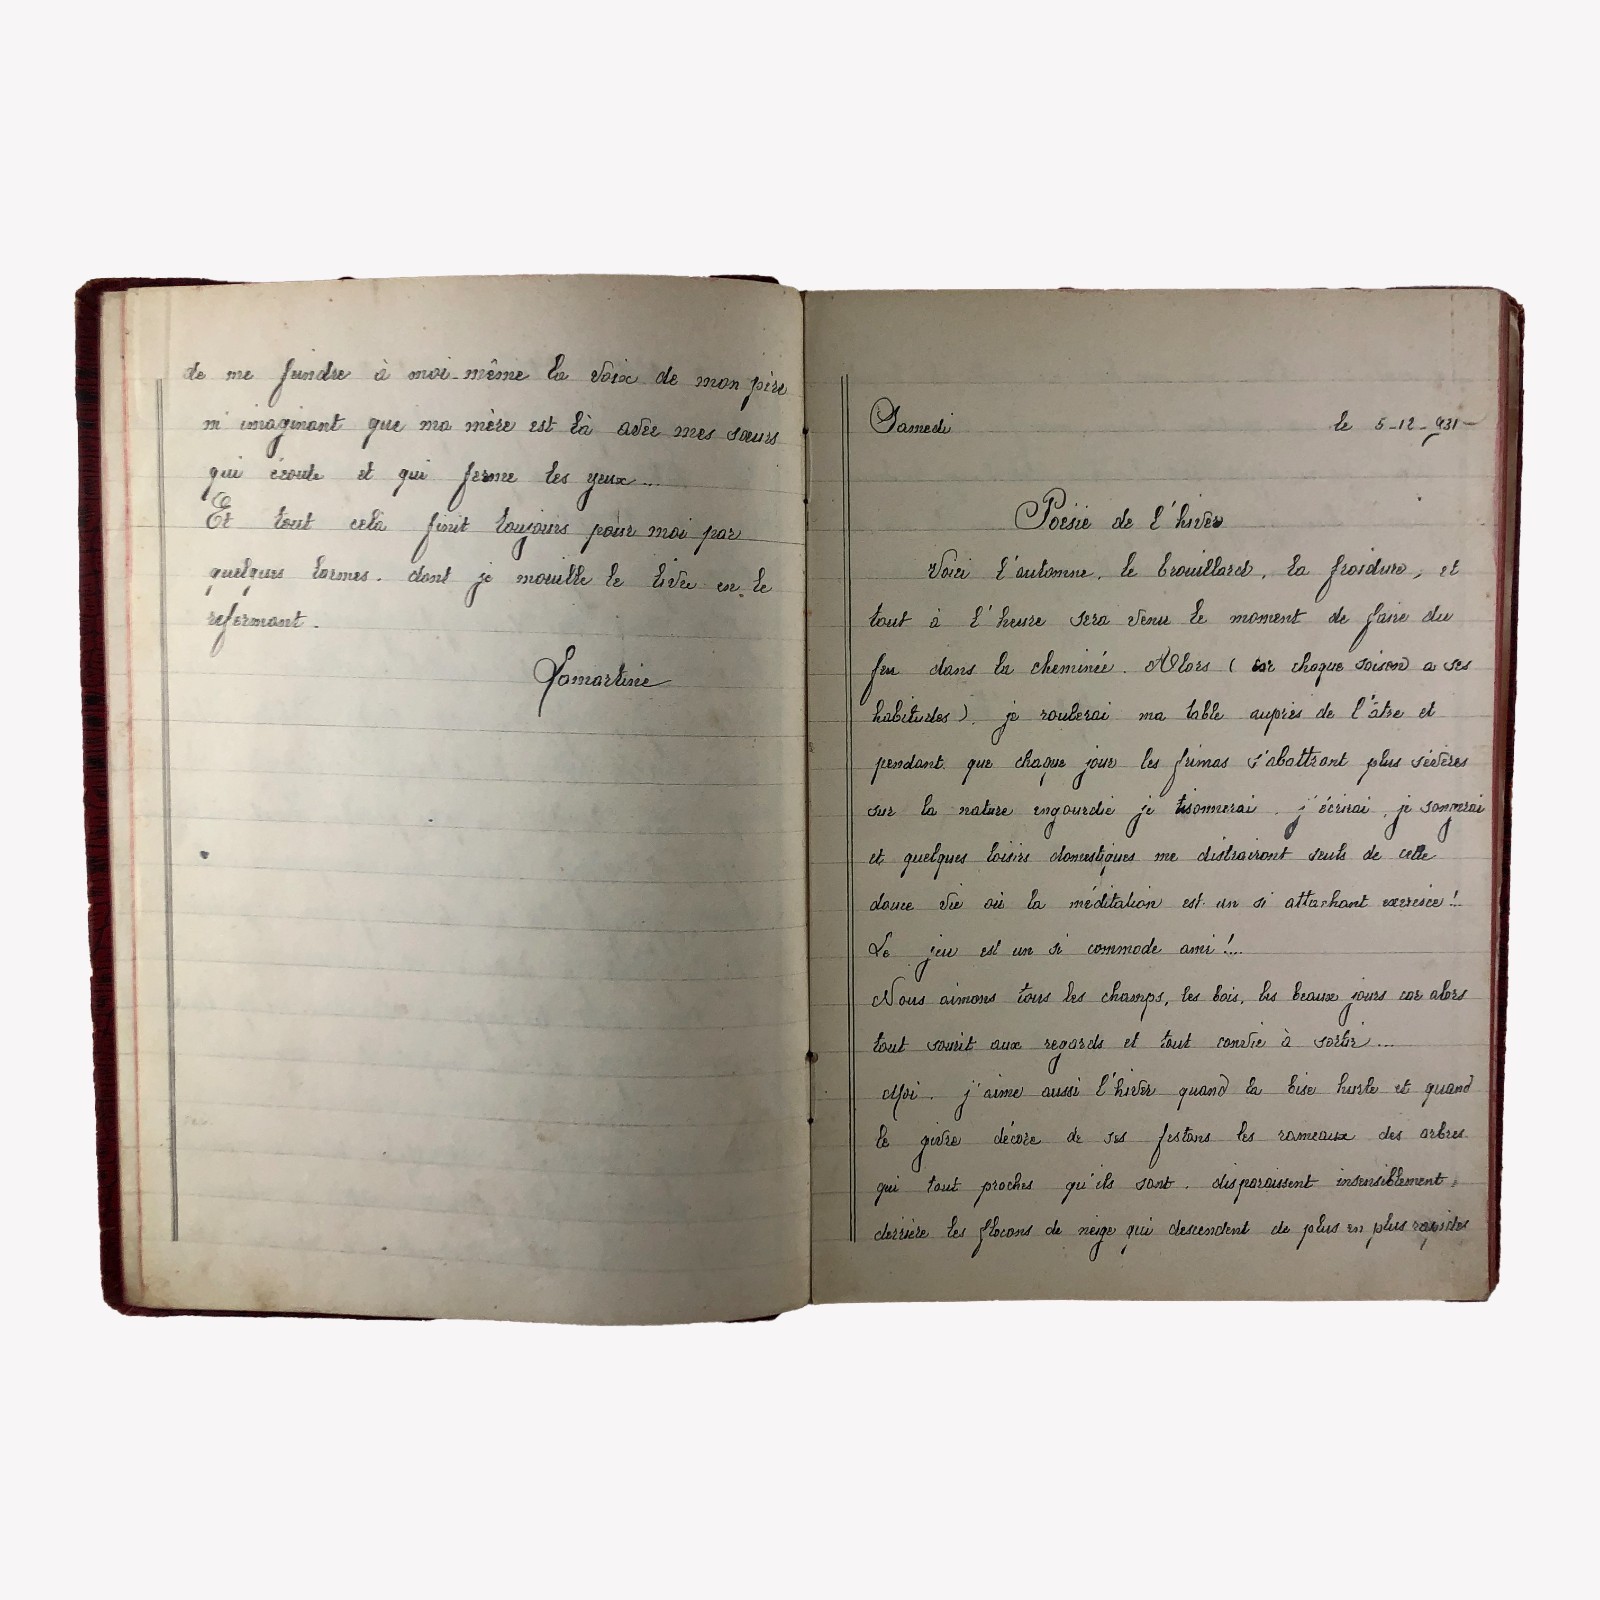 de me feindre à moi-même la voix de mon père
m'imaginant que ma mère est là avec mes sœurs
qui écoute et qui ferme les yeux...
Et tout cela finit toujours pour moi par
quelques larmes. dont je mouille le livre en le
refermant.
Lamartine
Samedi le 5-12-931-
Poésie de l'hiver
Voici l'automne, le brouillard, la froidure, et
tout à l'heure sera venu le moment de faire du
feu dans la cheminée. Alors (car chaque saison a ses
habitudes), je roulerai ma table auprès de l'âtre et
pendant que chaque jour les frimas s'abattront plus sévères
sur la nature engourdie je tisonnerai, j'écrirai, je songerai
et quelques loisirs domestiques me distrairont seuls de cette
douce vie où la méditation est un si attachant exercice!..
Le jeu est un si commode ami!...
Nous aimons tous les champs, les bois, les beaux jours car alors
tout sourit aux regards et tout convie à sortir...
Moi, j'aime aussi l'hiver quand la bise hurle et quand
le givre décore de ses festons les rameaux des arbres
qui tout proches qu'ils sont, disparaissent insensiblement,
derrière les flocons de neige qui descendent de plus en plus rapides